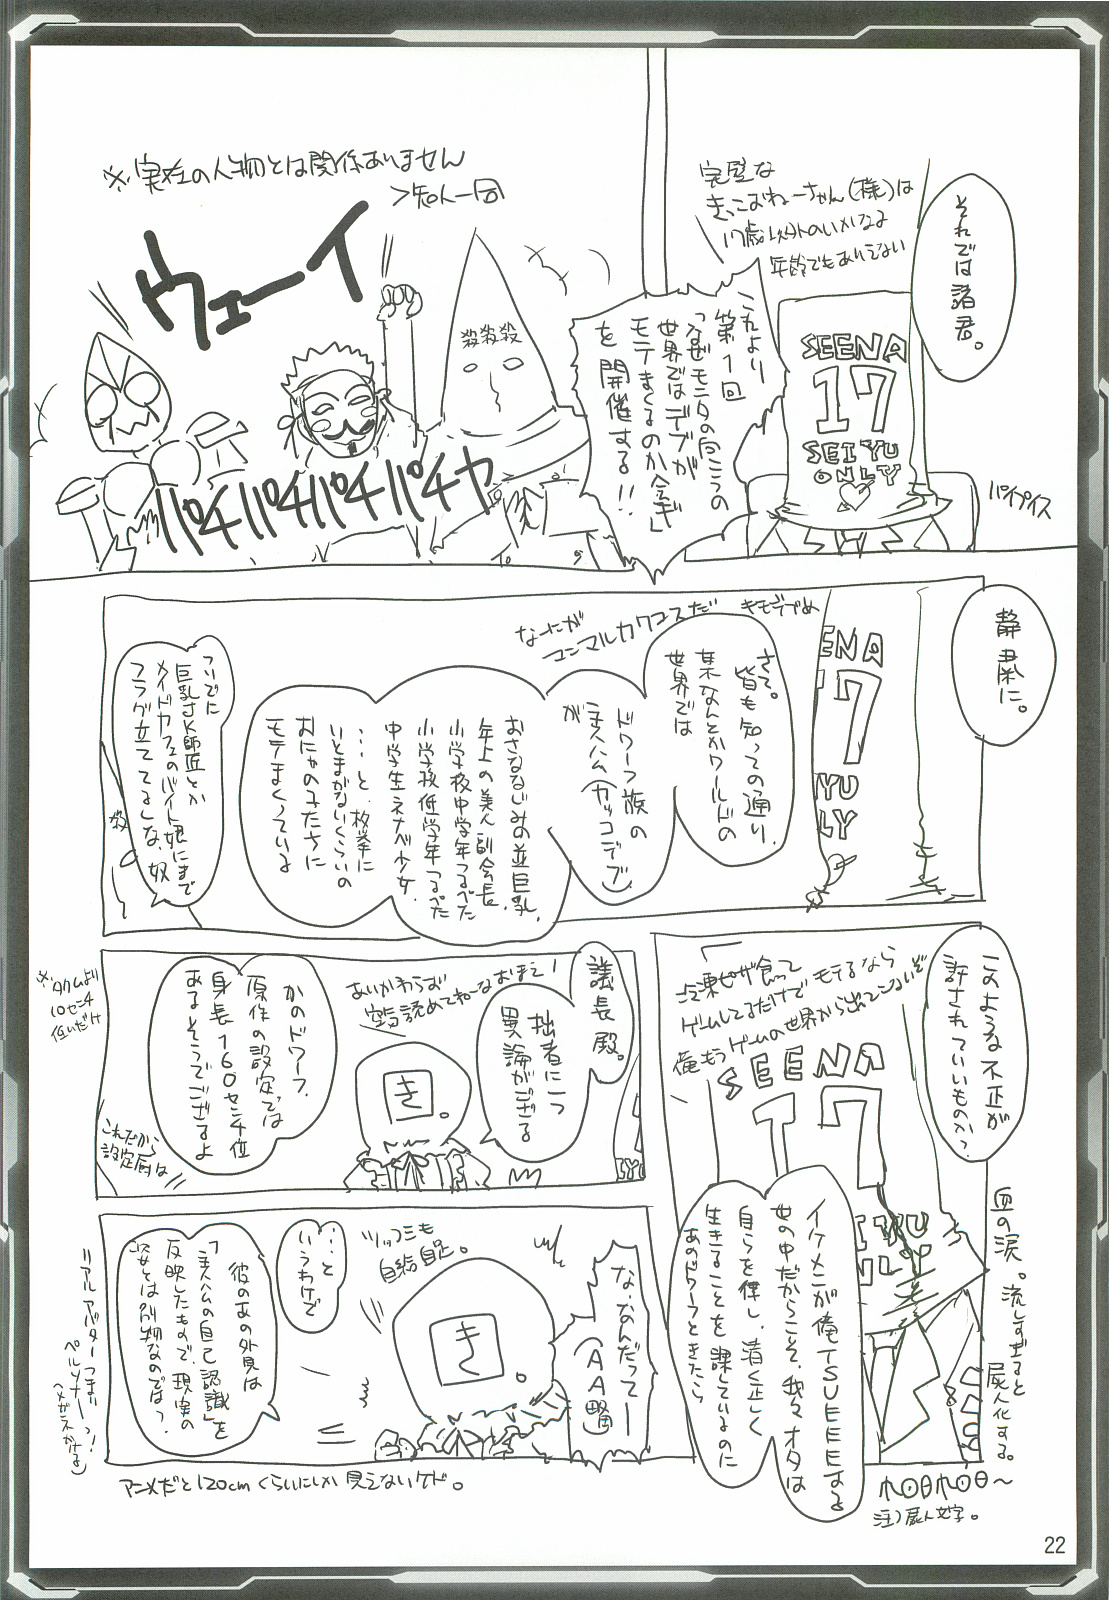 それでは諸君。
完璧な
きっこおねーちゃん(様)は
17歳以外のいかなる
年齢でもありえない
SEENA
17
SEIYU
ONLY
パイプイス
これより
第1回
「なぜモニタの向こうの
世界ではデブが
モテまくるのか会議」
を開催する!!
※実在の人物とは関係ありません
>知人一同
ウェーイ
殺殺殺
パチパチパチパチャ
静粛に。
キモデブめ
なーたが
コンマルカワコスだ
ENA
17
IYU
LY
さて。
皆も知っての通り、
某なんとかワールドの
世界では
ドワーフ族の
主人公(カッコデブ)
が
おさななじみの並巨乳、
年上の美人副会長、
小学校中学年つるぺた
小学校低学年つるぺた
中学生ネナベ少女、
・・・と、枚挙に
いとまがないくらいの
おにゃのこたちに
モテまくっている
ついでに
巨乳JK師匠とか
メイドカフェのバイト娘にまで
フラグ立ててるしな、奴
殺
このような不正が
許されていいものか?
冷凍ピザ食って
ゲームしてるだけでモテるなら
俺もうゲームの世界から出てこないぞ
SEENA
17
イケメンが俺TSUEEEEする
世の中だからこそ、我々オタは
自らを律し、清く正しく
生きることを課しているのに
あのドワーフときたら
血の涙。流しすぎると
屍人化する。
注)屍人文字。
議長殿。
拙者に一つ
異論がござる
あいかわらず
空気読めてねーなおまえ!
き。
かのドワーフ、
原作の設定では
身長160センチ位
あるそうでござるよ
※タクムより
10センチ
低いだけ
これだから
設定厨は
な、なんだってー
(AA略)
ツッコミも
自給自足。
き。
・・・と
いうわけで
彼のあの外見は
「主人公の自己認識」を
反映したもので、現実の
彼とは別物なのでは?
リアルアバターつまり
ペルソナーっ!
(メガネかける)
アニメだと120cmくらいにしか見えないケド。
22